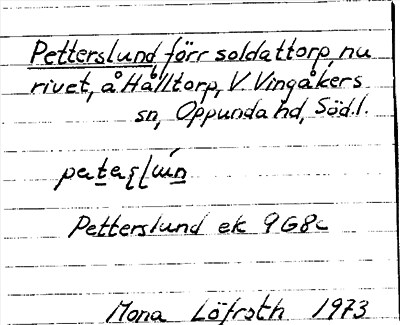 Petterslund, förr soldattorp, nu
rivet, å Hålltorp, V. Vingåkers
sn, Oppunda hd, Söd.l.
Petterslund ek 9G8c
Mona Löfroth 1973